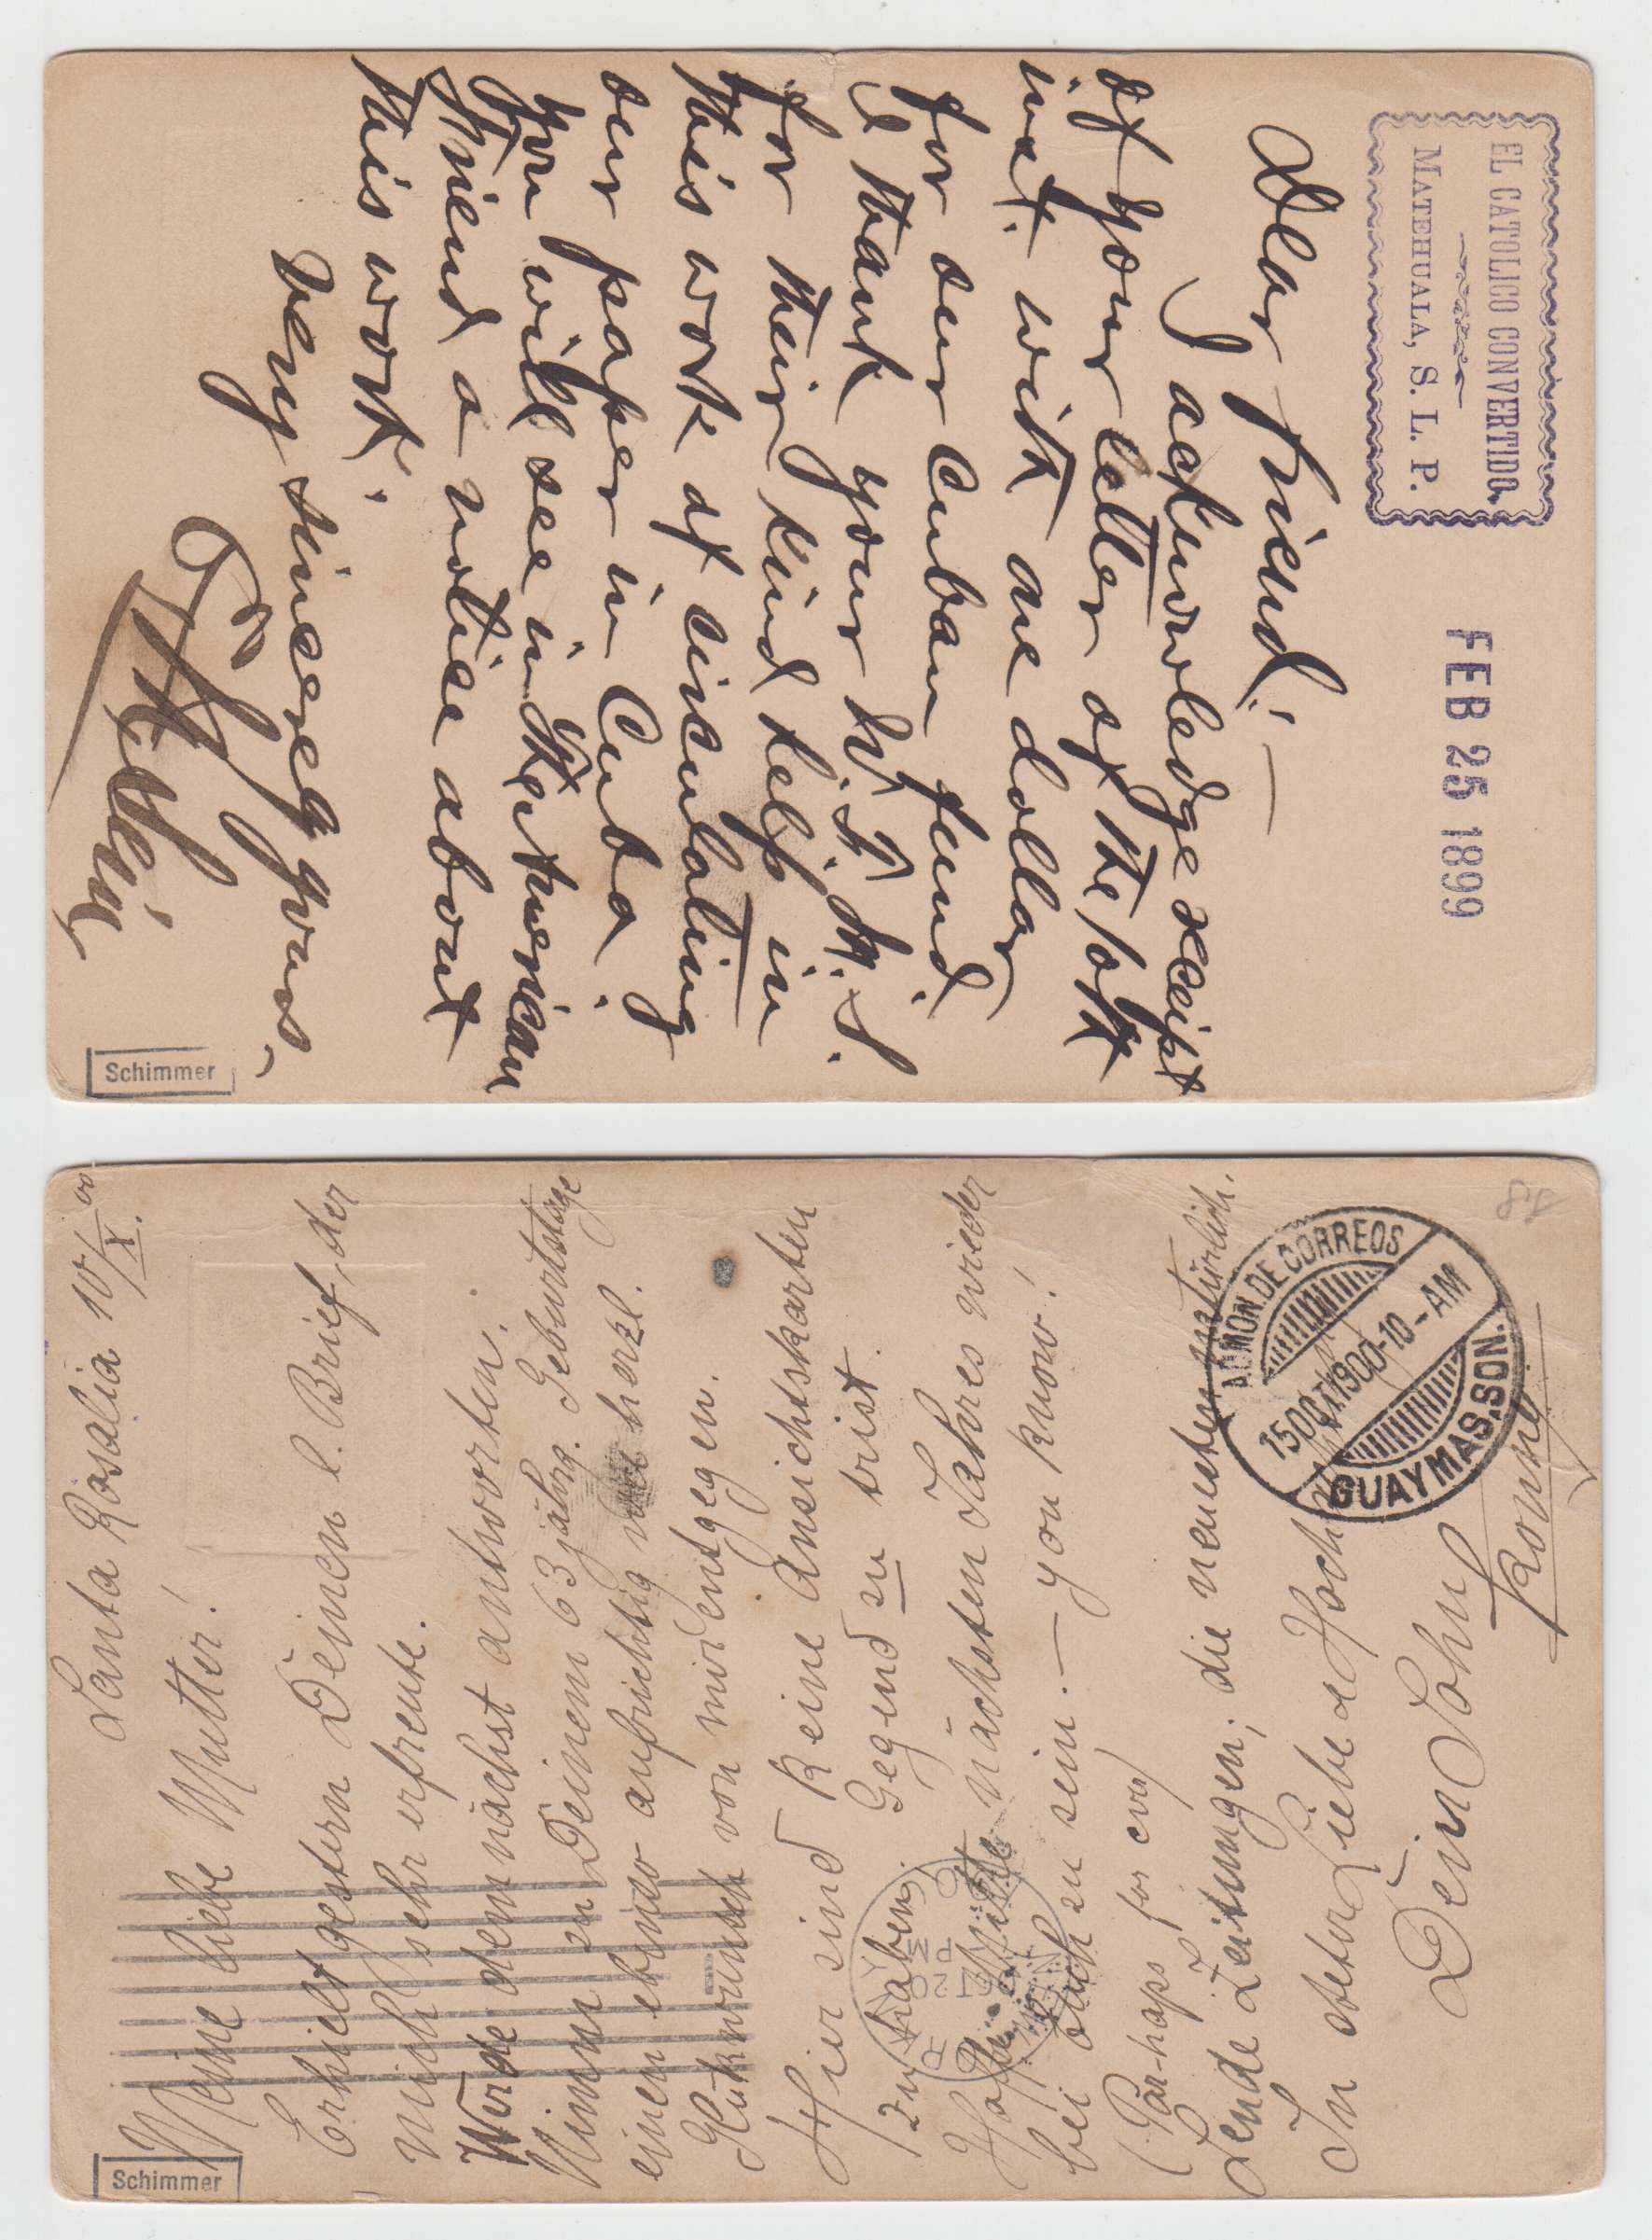 EL CATOLICO CONVERTIDO,
MATEHUALA, S. L. P.
FEB 25 1899
Dear friend!—
I acknowledge receipt
of your letter of the 10th
inst. with one dollar
for our Cuban fund.
I thank your W. F. M. S.
for their kind help in
this work of circulating
our paper in Cuba.
You will see in the
friend a notice about
this work.
Very sincerely yours,
Schimmer
Santa Rosalia 10/X. 00
Meine liebe Mutter!
Erhielt gestern Deinen l. Brief, der
mich sehr erfreute.
Werde demnächst antworten.
Nimm zu Deinem 63 jährg. Geburtstage
einen ebenso aufrichtig herzl.
Glückwunsch von mir entgegen.
Hier sind keine Ansichtskarten
zu haben. Gegend zu trist.
Hoffe Mitte nächsten Jahres wieder
bei Euch zu sein. — you know!
(Par-haps for ever)
Sende Zeitungen; die neuesten natürlich.
In steter Liebe &
Dein Sohn
ADMON. DE CORREOS
15 OCT. 1900 - 10 - AM
GUAYMAS, SON.
OCT 20
88
Schimmer